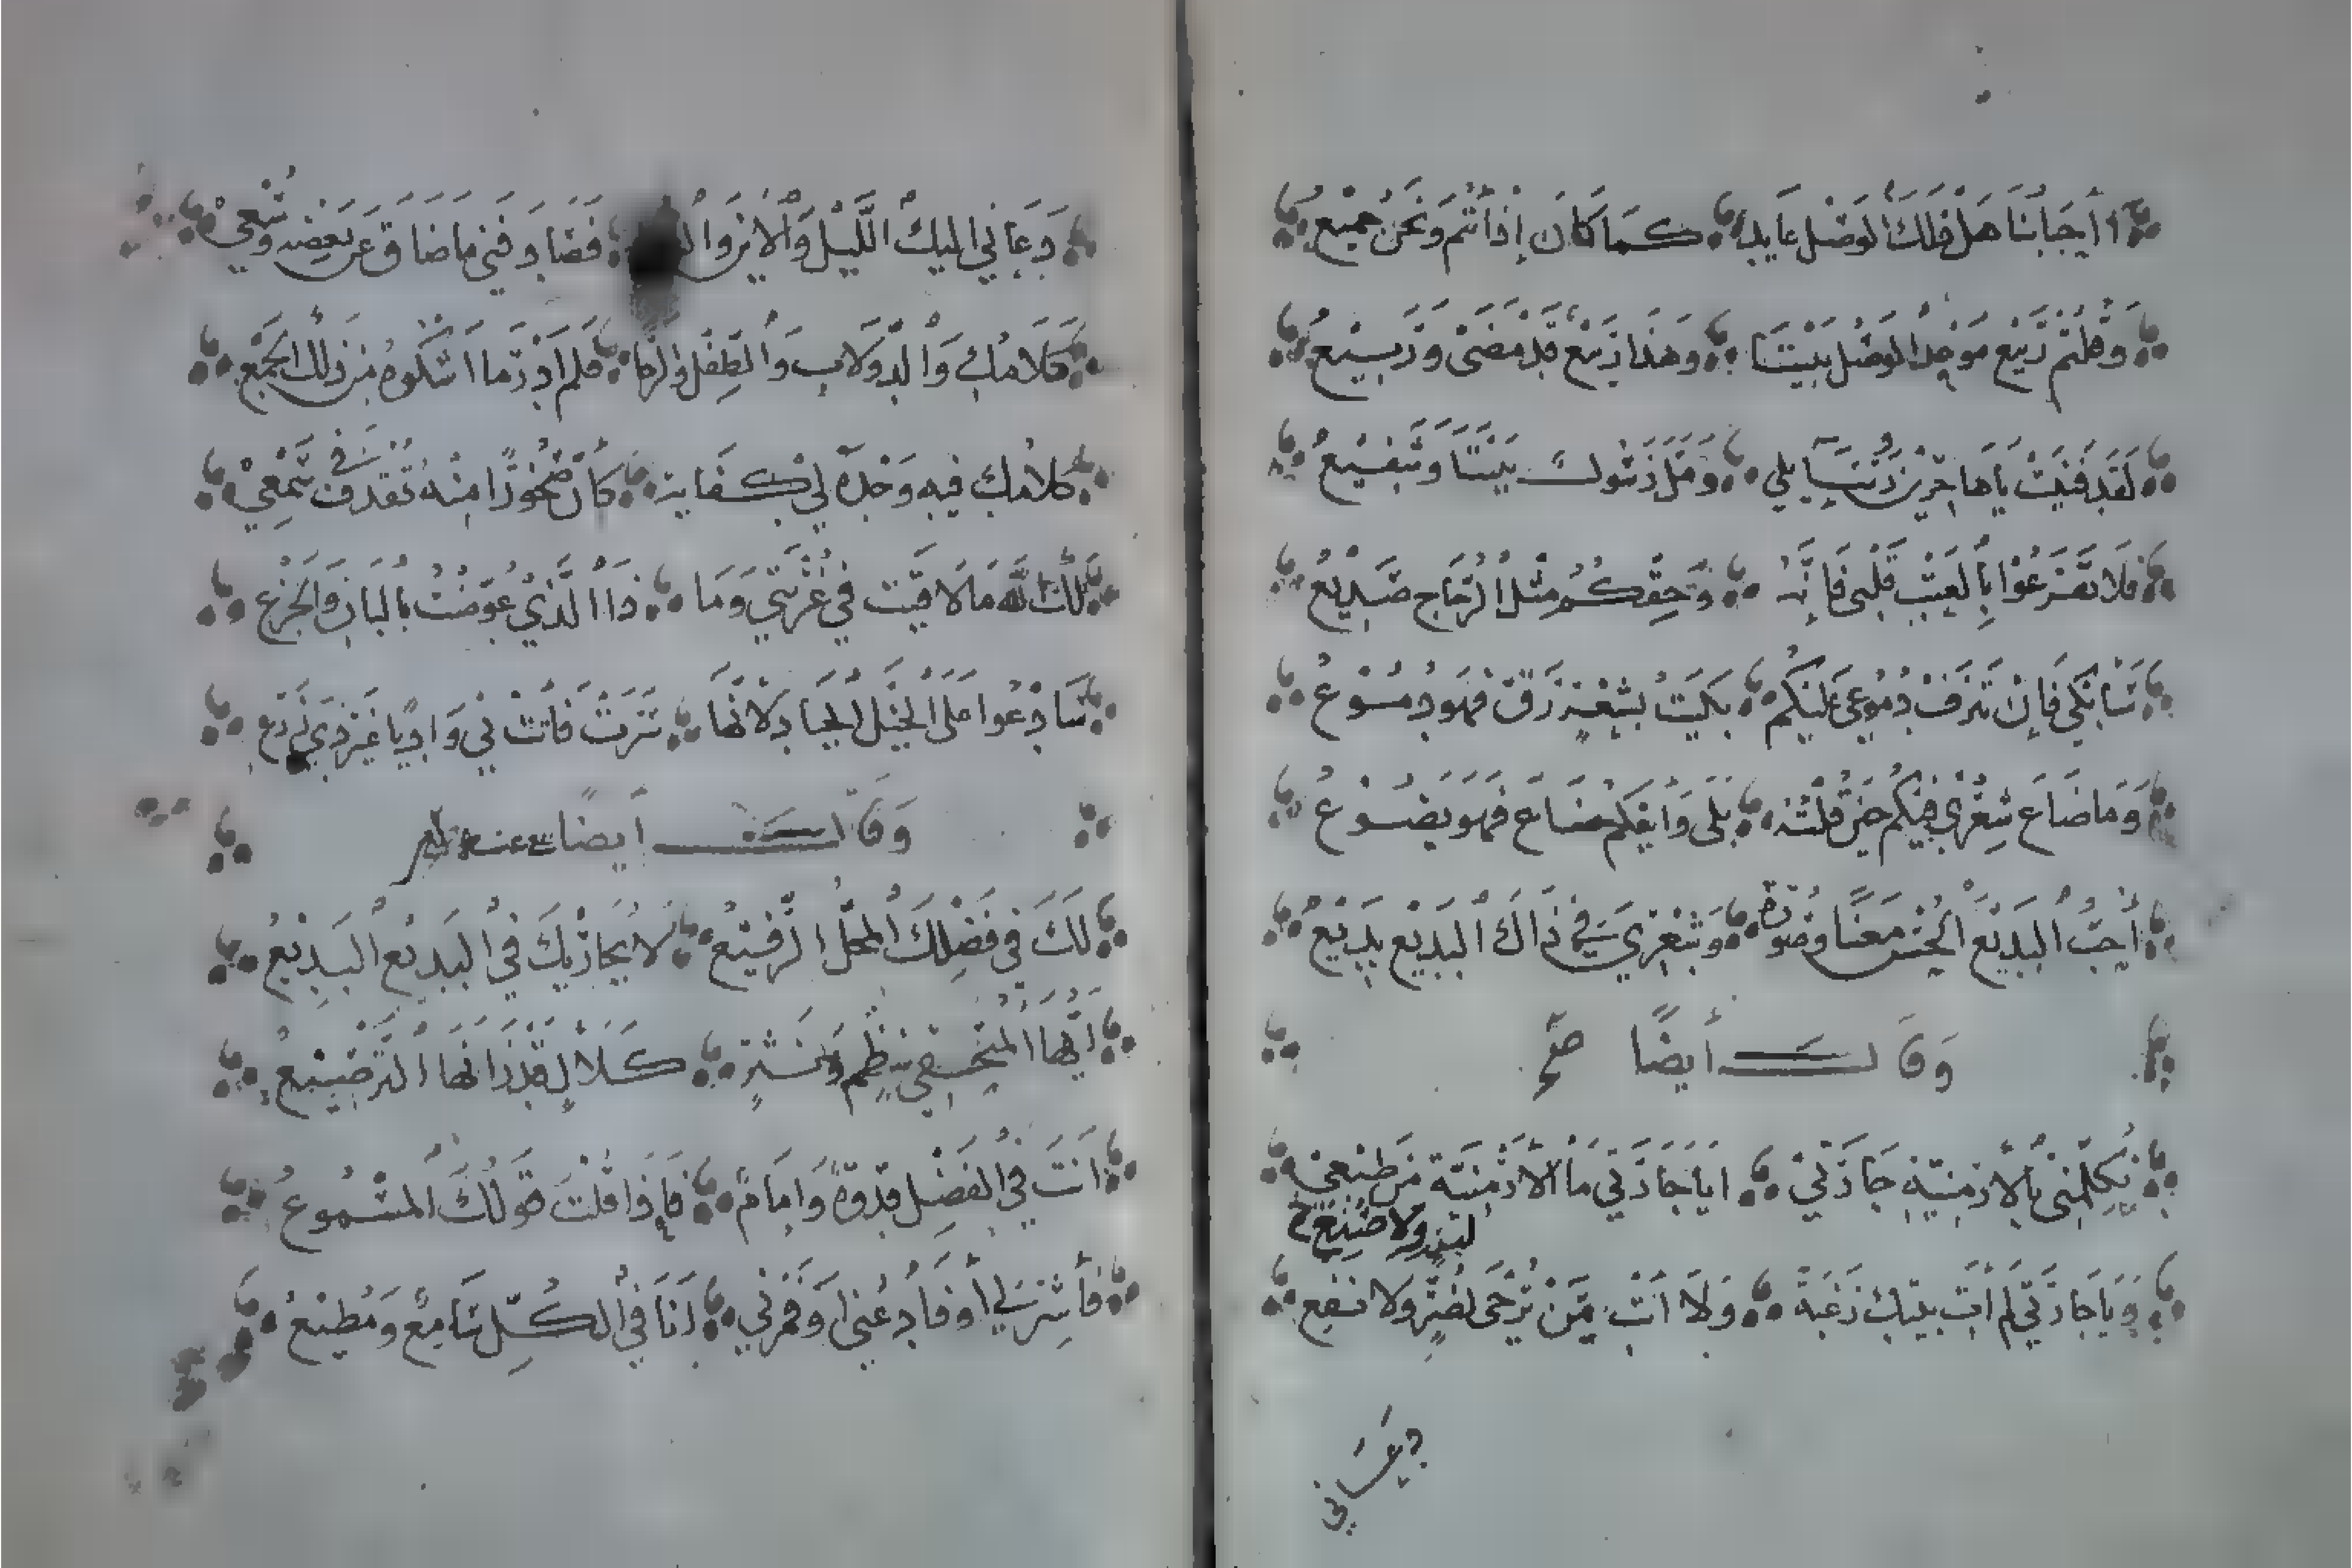 أَأَحْبَابَنَا هَلْ ذَلِكَ الْوَصْلُ عَايِدٌ كَمَا كَانَ إِذْ أَنْتُمْ وَنَحْنُ جَمِيْعُ
وَقُلْتُمْ رَبِيْع مَوْعِدُ الْوَصْلِ بَيْنَنَا وَهَذَا رَبِيْعٌ قَدْ مَضَى وَرَبِيْعُ
لَقَدْ فَنِيَتْ يَا هَاجِرِيْنَ رَسَايِلِي وَمَلَّ رَسُولٌ بَيْنَنَا وَشَفِيْعُ
فَلَا تَقْرَعُوْا بِالْعَتْبِ قَلْبِى فَإِنَّهُ وَحَقِّكُمُ مِثْلُ الزُّجَاجِ صَدِيْعُ
سَأَبْكِي فَإِنْ تَنْزَفْ دُمُوْعِى عَلَيْكُم بَكَيْتُ بِشِعْرٍ رَقَّ فَهْوَ دُمُوْعُ
وَمَا ضَاعَ شِعْرِي فِيْكُمُ حِيْنَ قُلْتُهُ بَلَى وَأَبِيْكُمْ ضَاعَ فَهْوَ يَضُوْعُ
أُحِبُّ الْبَدِيْعَ الْحُسْنِ مَعْنًا وَصُوْرَةً وَشِعْرِيَ فِي ذَاكَ الْبَدِيْعِ بَدِيْعُ
وَقَالَ أَيضًا صح
تُكَلِّمُنِى بِالْأَرْمَنِيَّةِ جَارَتِيْ أَيَا جَارَتِي مَا الْأَرْمَنِيَّةُ مِنْ طَبْعِيْ
وَيَا جَارَتِي لَمْ آتِ بَيْتَكِ رَغْبَةً وَلَا أَنْتِ مِمَّنْ يُرْجَى لِضُرٍّ وَلَا نَفْعِ
دَعَانِي
دَعَانِي إِلَيْكِ اللَّيْلُ وَالْأَيْنُ وَا فَصَادَفَنِي مَا ضَاقَ عَنْ بَعْضِهِ وُسْعِيْ
كَلَامُكِ وَالدُّولَابُ وَالطِّفْلُ وَالرَّحَا فَلَمْ أَدْرِ مَا أَشْكُوهُ مِنْ ذَلِكَ الْجَمْعِ
كَلَامُكِ فِيهِ وَحْدَهُ لِي كِفَايَةٌ كَأَنَّ صُخُوْرًا مِنْهُ تُقْذَفُ فِي سَمْعِيْ
لَكِ اللَّهُ مَا لَاقَيْتِ فِي غُرْبَتِي وَمَا ذَا الَّذِيْ عُوِّضْتُ بِالْبَانِ وَالْجِزْعِ
سَأَدْعُوا عَلَى الْخَيْلِ الْجِيَادِ لِأَنَّهَا سَرَتْ فَأَتَتْ بِي وَادِيًا غَيْرَ ذِيْ زَرْعِ
وَقَالَ أيضًا
لَكَ فِي فَضْلِكَ الْمَحَلُّ الرَّفِيْعُ لَا يُجَارِيْكَ فِي الْبَدِيْعِ الْبَدِيْعُ
أَيُّهَا الْمُتْحِفِي بِنَظْمٍ وَنَثْرٍ كَلَآلٍ قَدْ زَانَهَا التَّرْصِيْعُ
أَنْتَ فِي الْفَضْلِ قِدْوَةٌ وَإِمَامٌ فَإِذَا قُلْتَ قَوْلُكَ الْمَسْمُوعُ
فَأَشِرْ لِي أَوْ فَادْعُنِي أَوْ فَمُرْنِي أَنَا فِي الْكُلِّ سَامِعٌ وَمُطِيْعُ